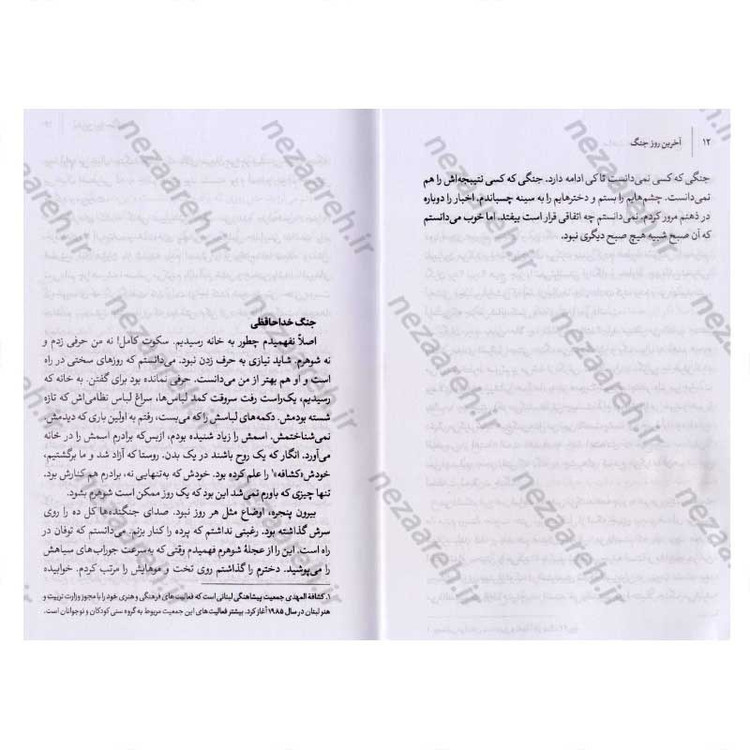 ۱۲ | آخرین روز جنگ
جنگی که کسی نمی‌دانست تا کی ادامه دارد. جنگی که کسی نتیجه‌اش را هم
نمی‌دانست. چشم‌هایم را بستم و دخترهایم را به سینه چسباندم، اخبار را دوباره
در ذهنم مرور کردم. نمی‌دانستم چه اتفاقی قرار است بیفتد. اما خوب می‌دانستم
که آن صبح شبیه هیچ صبح دیگری نبود.
جنگ خداحافظی
اصلاً نفهمیدم چطور به خانه رسیدیم. سکوت کامل! نه من حرفی زدم و
نه شوهرم. شاید نیازی به حرف زدن نبود. می‌دانستم که روزهای سختی در راه
است و او هم بهتر از من می‌دانست. حرفی نمانده بود برای گفتن. به خانه که
رسیدیم، یک‌راست رفت سروقت کمد لباس‌ها، سراغ لباس نظامی‌اش که تازه
شسته بودمش. دکمه‌های لباسش را که می‌بست، رفتم به اولین باری که دیدمش.
نمی‌شناختمش. اسمش را زیاد شنیده بودم، ازبس‌که برادرم اسمش را در خانه
می‌آورد. انگار که یک روح باشند در یک بدن. روستا که آزاد شد و ما برگشتیم،
خودش «کشافه»۱ را علم کرده بود. خودش که به‌تنهایی نه، برادرم هم کنارش بود.
تنها چیزی که باورم نمی‌شد این بود که یک روز ممکن است شوهرم بشود.
بیرون پنجره، اوضاع مثل هر روز نبود. صدای جنگنده‌ها کل ده را روی
سرش گذاشته بود. رغبتی نداشتم که پرده را کنار بزنم. می‌دانستم که توفان در
راه است. این را از عجلهٔ شوهرم فهمیدم وقتی که به‌سرعت جوراب‌های سیاهش
را می‌پوشید. دخترم را گذاشتم روی تخت و موهایش را مرتب کردم. خوابیده
۱. کشافة المهدی جمعیت پیشاهنگی لبنانی است که فعالیت های فرهنگی و هنری خود را با مجوز وزارت تربیت و
هنر لبنان در سال ۱۹۸۵ آغاز کرد. بیشتر فعالیت های این جمعیت مربوط به گروه سنی کودکان و نوجوانان است.
nezaareh.ir
nezaareh.ir
nezaareh.ir
nezaareh.ir
nezaareh.ir
nezaareh.ir
nezaareh.ir
nezaareh.ir
nezaareh.ir